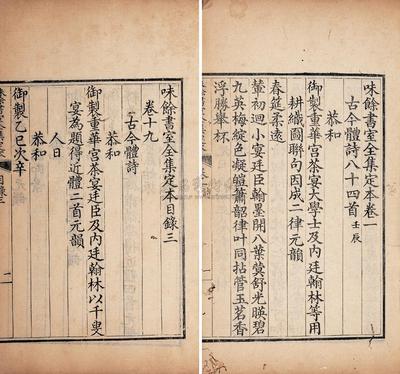 味餘書室全集定本卷一
古今體詩八十四首 壬辰
恭和
御製重華宮茶宴大學士及內廷翰林等用
耕織圖聯句因成二律元韻
春筵柔遠
輦初迴小宴廷臣翰墨開八葉蓂舒光暎碧
九英梅綻色凝皚蕭韶律叶同拈管玉茗香
浮勝舉杯
味餘書室全集定本目錄三
卷十九
古今體詩
恭和
御製重華宮茶宴廷臣及內廷翰林以千叟
宴為題得近體二首元韻
人日
恭和
御製乙巳次辛